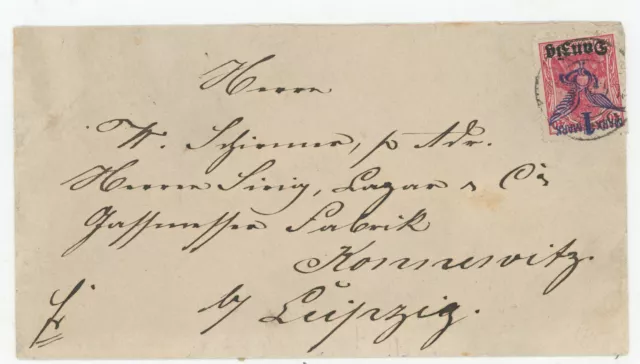 Herrn
W. Schirmer, p Adr.
Herren Sirig, Lazar & Co
Gassmesser Fabrik
Konnewitz
b/ Leipzig.
fr
Danzig
1